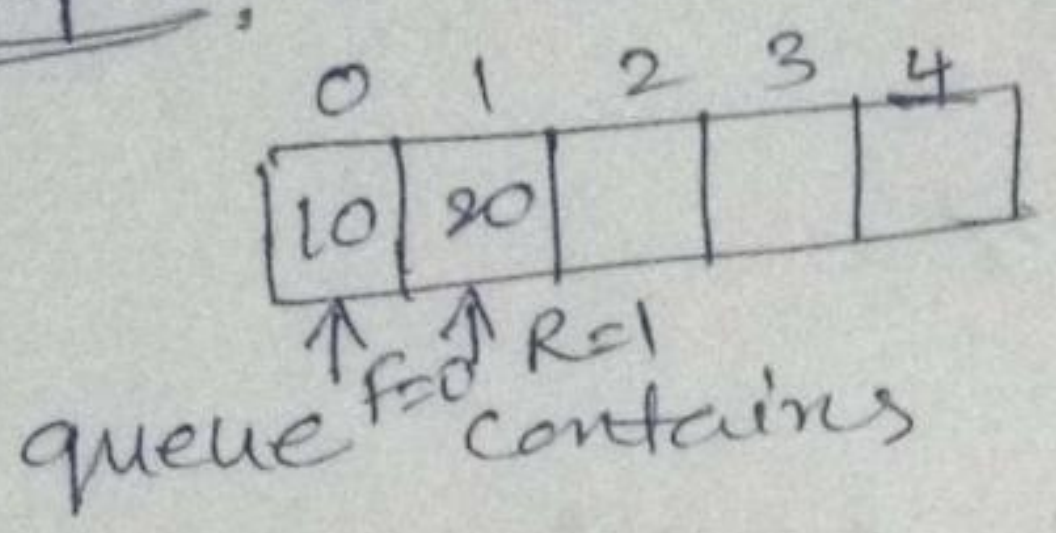 0 1 2 3 4
10 20
F=0 R=1
queue contains